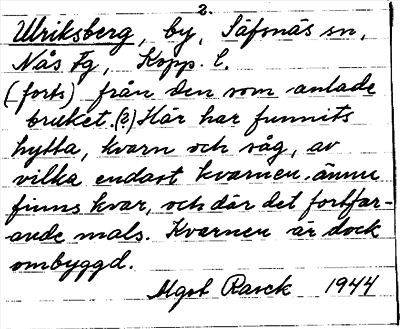 2.
Ulriksberg, by, Säfsnäs sn,
Nås Fg, Kopp. l.
(forts) från den som anlade
bruket.(?) Här har funnits
hytta, kvarn och såg, av
vilka endast kvarnen ännu
finns kvar, och där det fortfar-
ande mals. Kvarnen är dock
ombyggd.
Mgot Rasck 1944